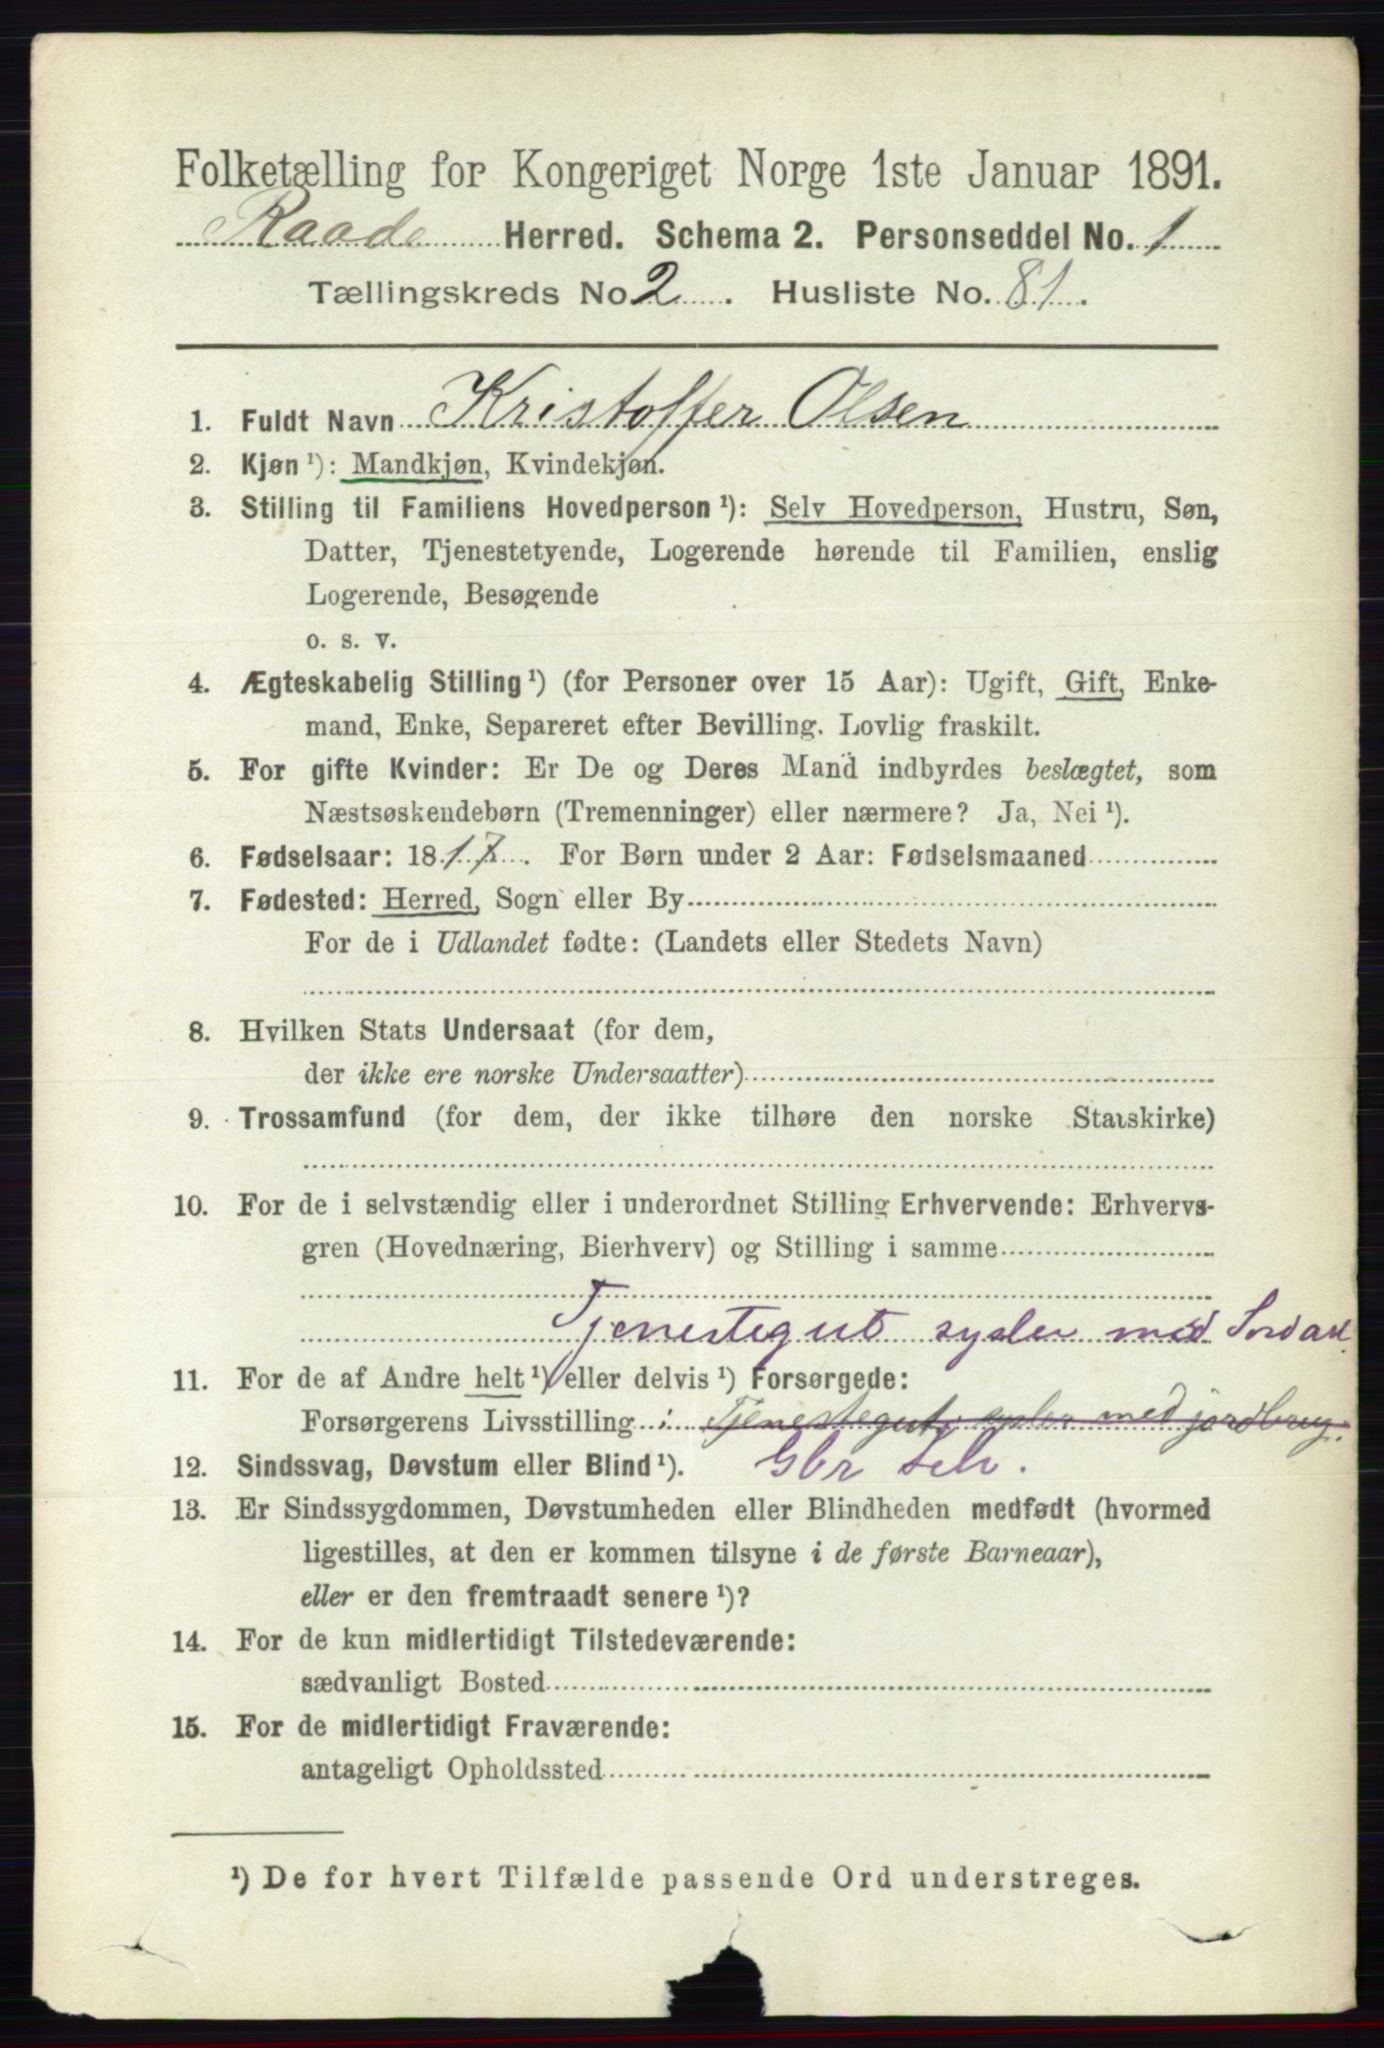 Folketælling for Kongeriget Norge 1ste Januar 1891.
Raade Herred. Schema 2. Personseddel No. 1
Tællingskreds No. 2. Husliste No. 81.
1. Fuldt Navn Kristoffer Olsen
2. Kjøn ¹): Mandkjøn, Kvindekjøn.
3. Stilling til Familiens Hovedperson ¹): Selv Hovedperson, Hustru, Søn,
Datter, Tjenestetyende, Logerende hørende til Familien, enslig
Logerende, Besøgende
o. s. v.
4. Ægteskabelig Stilling ¹) (for Personer over 15 Aar): Ugift, Gift, Enke-
mand, Enke, Separeret efter Bevilling. Lovlig fraskilt.
5. For gifte Kvinder: Er De og Deres Mand indbyrdes beslægtet, som
Næstsøskendebørn (Tremenninger) eller nærmere? Ja, Nei ¹).
6. Fødselsaar: 1817. For Børn under 2 Aar: Fødselsmaaned
7. Fødested: Herred, Sogn eller By
For de i Udlandet fødte: (Landets eller Stedets Navn)
8. Hvilken Stats Undersaat (for dem,
der ikke ere norske Undersaatter)
9. Trossamfund (for dem, der ikke tilhøre den norske Statskirke)
10. For de i selvstændig eller i underordnet Stilling Erhvervende: Erhvervs-
gren (Hovednæring, Bierhverv) og Stilling i samme
Tjenestegut sysler med
11. For de af Andre helt ¹) eller delvis ¹) Forsørgede:
Forsørgerens Livsstilling : Tjenestegut, sysler med jordbrug.
12. Sindssvag, Døvstum eller Blind ¹). Gbr Selv.
13. Er Sindssygdommen, Døvstumheden eller Blindheden medfødt (hvormed
ligestilles, at den er kommen tilsyne i de første Barneaar),
eller er den fremtraadt senere ¹)?
14. For de kun midlertidigt Tilstedeværende:
sædvanligt Bosted
15. For de midlertidigt Fraværende:
antageligt Opholdssted
¹) De for hvert Tilfælde passende Ord understreges.